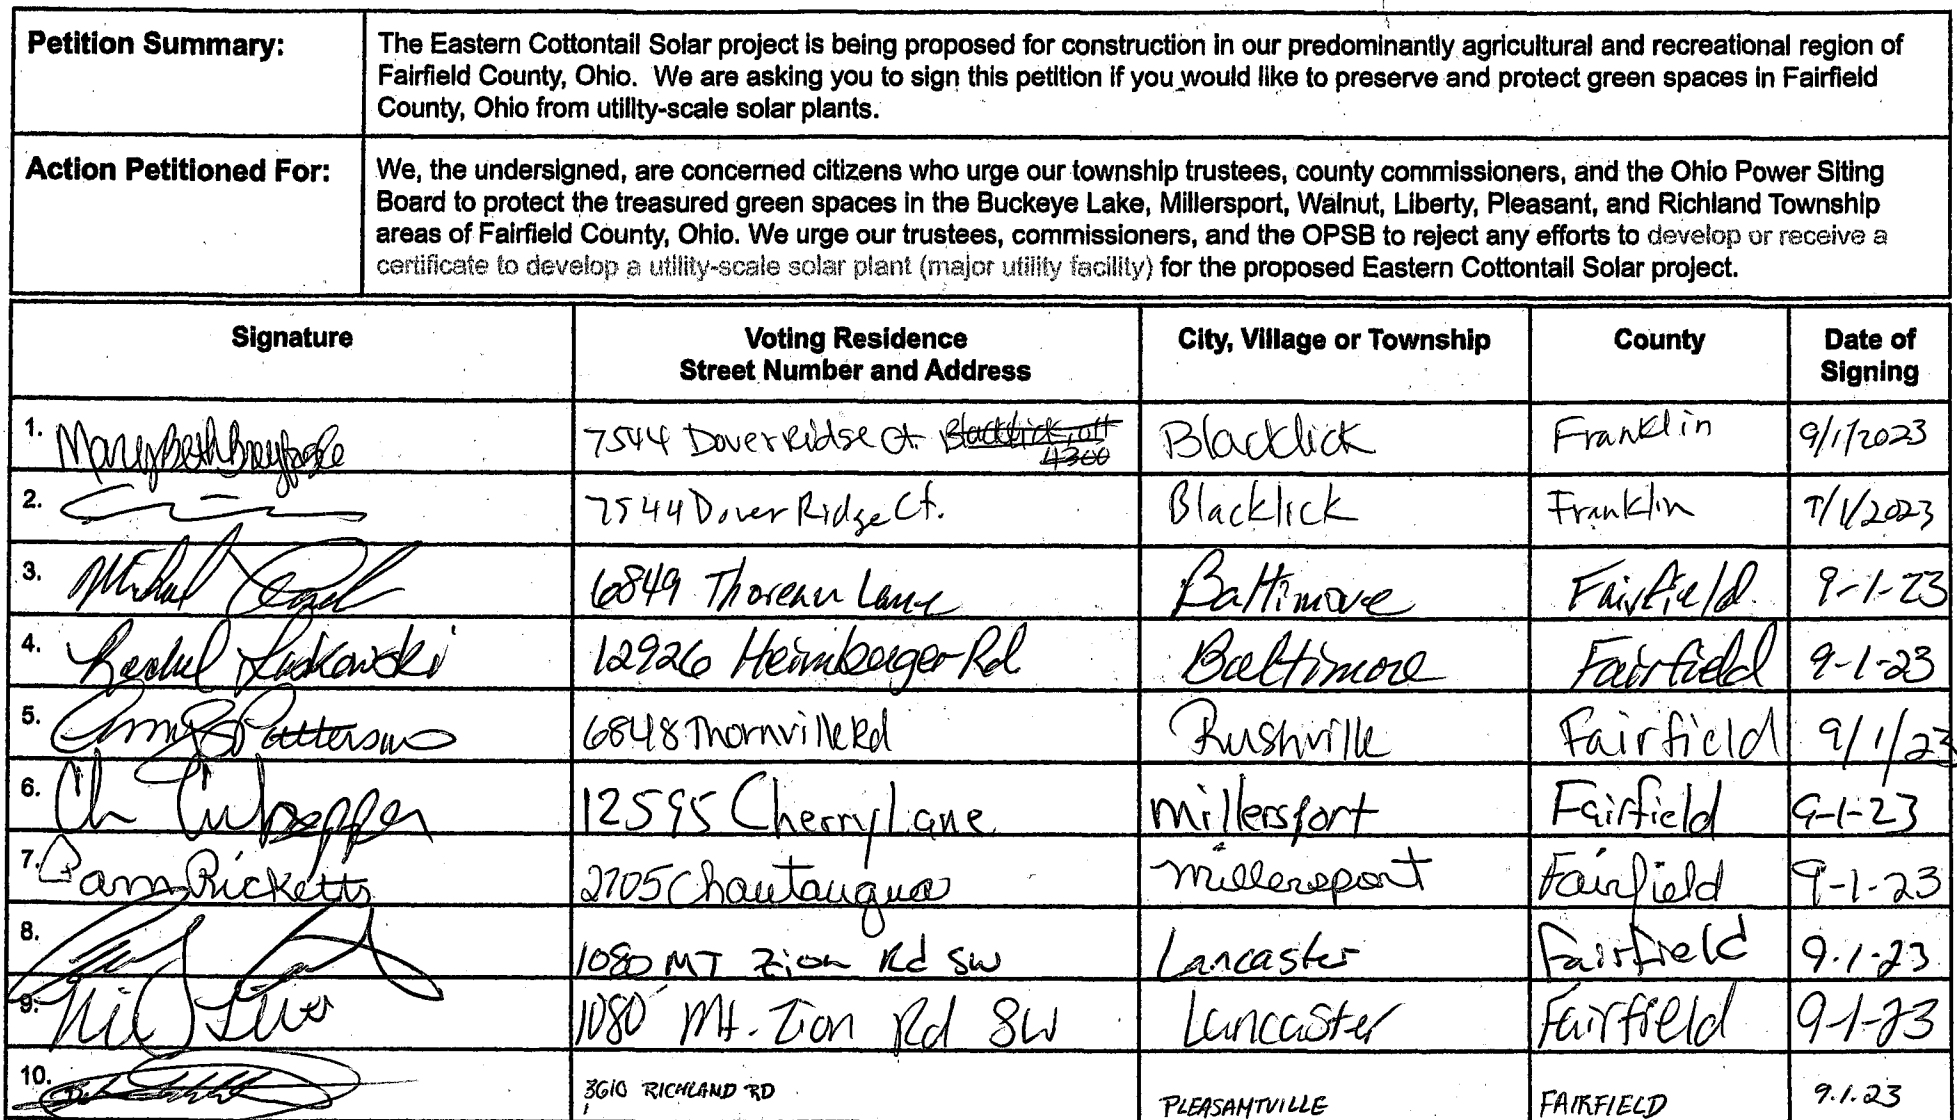 Petition Summary:
The Eastern Cottontail Solar project is being proposed for construction in our predominantly agricultural and recreational region of
Fairfield County, Ohio. We are asking you to sign this petition if you would like to preserve and protect green spaces in Fairfield
County, Ohio from utility-scale solar plants.
Action Petitioned For:
We, the undersigned, are concerned citizens who urge our township trustees, county commissioners, and the Ohio Power Siting
Board to protect the treasured green spaces in the Buckeye Lake, Millersport, Walnut, Liberty, Pleasant, and Richland Township
areas of Fairfield County, Ohio. We urge our trustees, commissioners, and the OPSB to reject any efforts to develop or receive a
certificate to develop a utility-scale solar plant (major utility facility) for the proposed Eastern Cottontail Solar project.
Signature
Voting Residence
Street Number and Address
City, Village or Township
County
Date of
Signing
1. Mary Beth 7544 Dover Ridge Ct. Blacklick Franklin 9/1/2023
2. 7544 Dover Ridge Ct. Blacklick Franklin 9/1/2023
3. Michael 6849 Thoreau Lane Baltimore Fairfield 9-1-23
4. Rachel 12926 Heimberger Rd Baltimore Fairfield 9-1-23
5. Patterson 6848 Thornville Rd Rushville Fairfield 9/1/23
6. Culpepper 12595 Cherry Lane Millersport Fairfield 9-1-23
7. Pam Ricketts 2705 Chautauqua Millersport Fairfield 9-1-23
8. 1080 MT Zion Rd SW Lancaster Fairfield 9.1.23
9. 1080 Mt. Zion Rd SW Lancaster Fairfield 9-1-23
10. 3610 RICHLAND RD PLEASANTVILLE FAIRFIELD 9.1.23